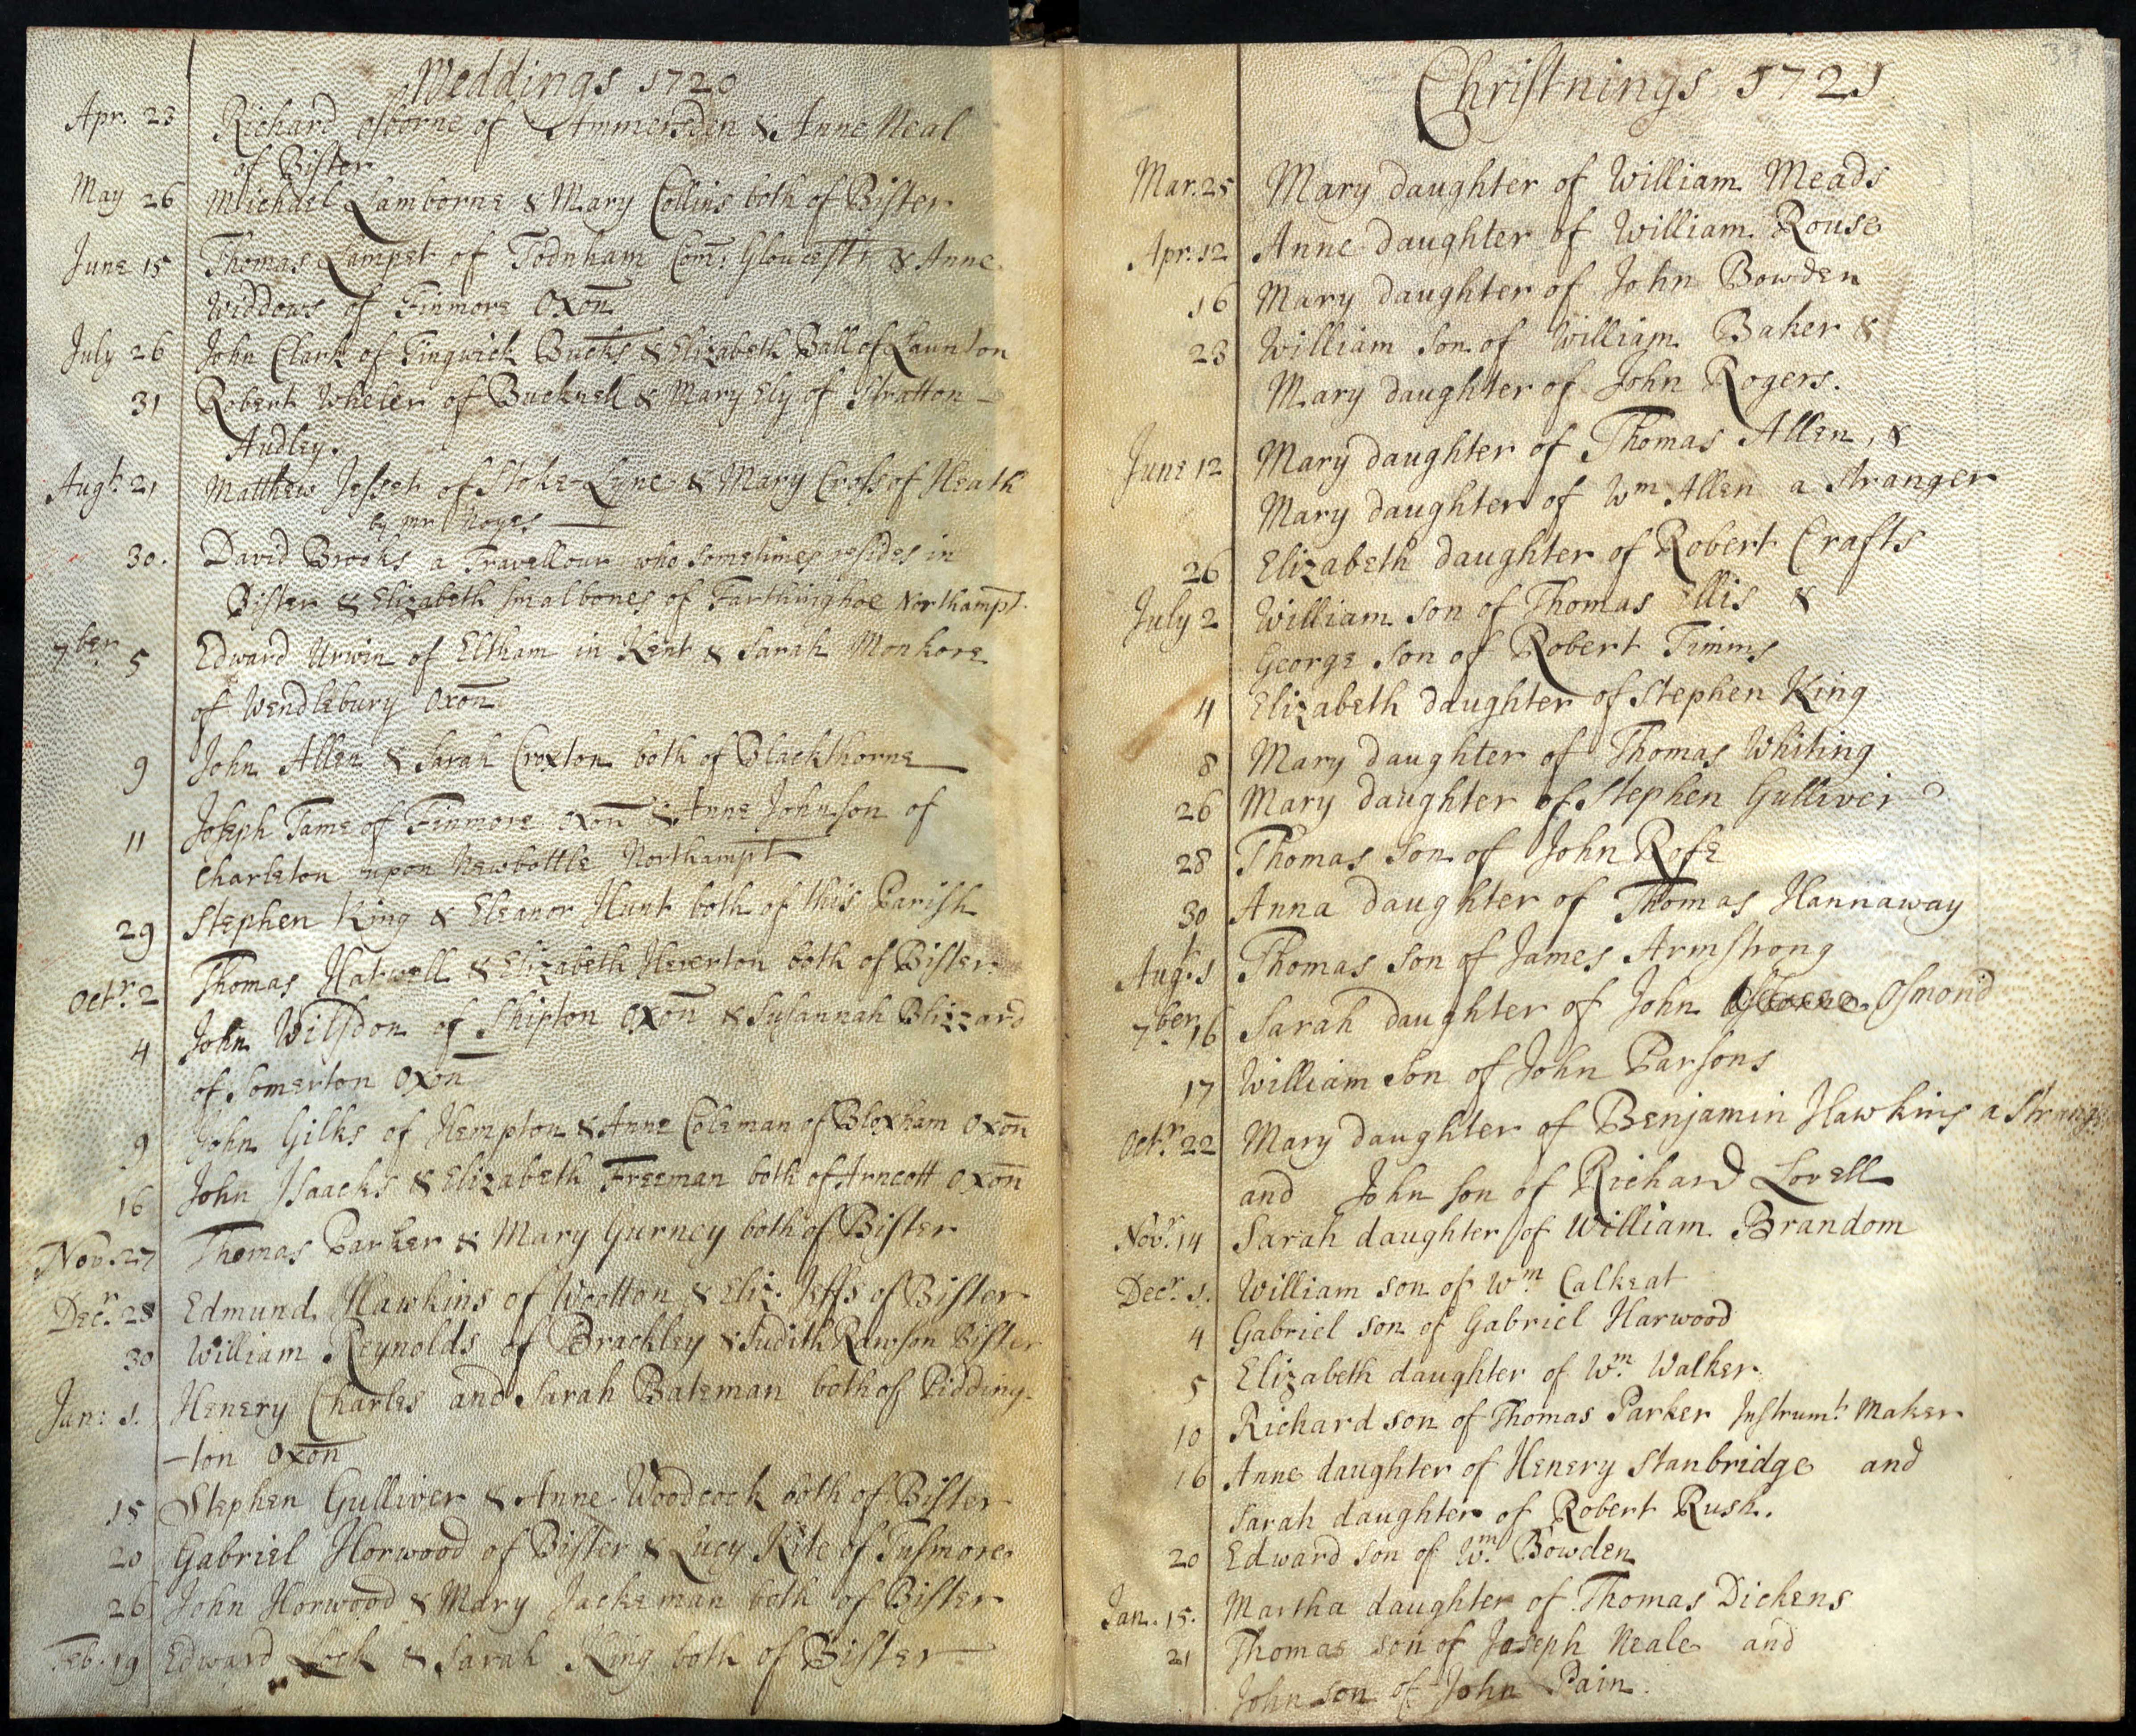 Weddings 1720
Apr. 23 Richard Osborne of Ammersden & Anne Neal
of Bister
May 26 Michael Lamborne & Mary Collins both of Bister
June 15 Thomas Lampet of Todnham Com: Gloucestr & Anne
Widdows of Finmore Oxon
July 26 John Clark of Tingwick Bucks & Elizabeth Ball of Launton
31 Robert Wheler of Bucknell & Mary Ely of Stratton -
Audley.
Augt. 21 Matthew Jessett of Stoke-Lyne & Mary Cross of Heath
by mr Noyes
30. David Brooks a Travellour who sometimes resides in
Bister & Elizabeth Smalbones of Farthinghoe Northampt.
7ber 5 Edward Urwin of Eltham in Kent & Sarah Monkore
of Wendlebury Oxon
9 John Allen & Sarah Croxton both of Blackthorne
11 Joseph Tame of Finmore Oxon & Anne Johnson of
Charleton upon Newbottle Northampt
29 Stephen King & Eleanor Hunt both of this Parish
Octr. 2 Thomas Hatwell & Elizabeth Heverton both of Bister.
4 John Wilsdon of Shipton Oxon & Susannah Blizzard
of Somerton Oxon
9 John Gilks of Hempton & Anne Coleman of Bloxham Oxon
16 John Isaacks & Elizabeth Freeman both of Arncott Oxon
Nov. 27 Thomas Parker & Mary Gurney both of Bister
Decr. 28 Edmund Hawkins of Wootton & Eliz. Jeffs of Bister
30 William Reynolds of Brackley & Judith Rawson Bister
Jan: 1. Henery Charles and Sarah Bateman both of Pidding-
-ton Oxon
15 Stephen Gulliver & Anne Woodcock both of Bister
20 Gabriel Horwood of Bister & Lucy Kite of Tusmore
26 John Horwood & Mary Jackeman both of Bister
Feb. 19 Edward Lock & Sarah King both of Bister
Christnings 1721
Mar. 25 Mary daughter of William Meads
Apr. 12 Anne daughter of William Rouse
16 Mary daughter of John Bowden
23 William Son of William Baker &
Mary daughter of John Rogers.
June 12 Mary daughter of Thomas Allen, &
Mary daughter of Wm Allen a Stranger
26 Elizabeth daughter of Robert Crafts
July 2 William Son of Thomas Ellis &
George Son of Robert Timms
4 Elizabeth daughter of Stephen King
8 Mary daughter of Thomas Whiting
26 Mary daughter of Stephen Gulliver
28 Thomas Son of John Rofe
30 Anna daughter of Thomas Hannaway
Augt. 1 Thomas Son of James Armstrong
7ber 16 Sarah daughter of John Osmond
17 William Son of John Parsons
Octr. 22 Mary daughter of Benjamin Hawkins a Strang
and John Son of Richard Lovell
Novr. 14 Sarah daughter of William Brandom
Decr. 1. William son of Wm Calkeat
4 Gabriel son of Gabriel Harwood
5 Elizabeth daughter of Wm. Walker
10 Richard son of Thomas Parker Instrumt. Maker
16 Anne daughter of Henery Stanbridge and
Sarah daughter of Robert Rush.
20 Edward son of Wm. Bowden
Jan. 15. Martha daughter of Thomas Dickens
21 Thomas son of Joseph Neale and
John son of John Pain.